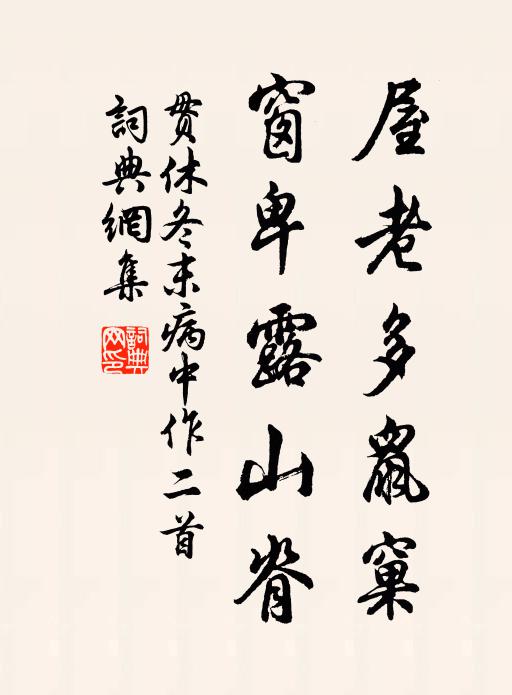 屋老多鼠窠
窗卑露山脊
贯休冬末病中作二首
詞典網集
詞典網印